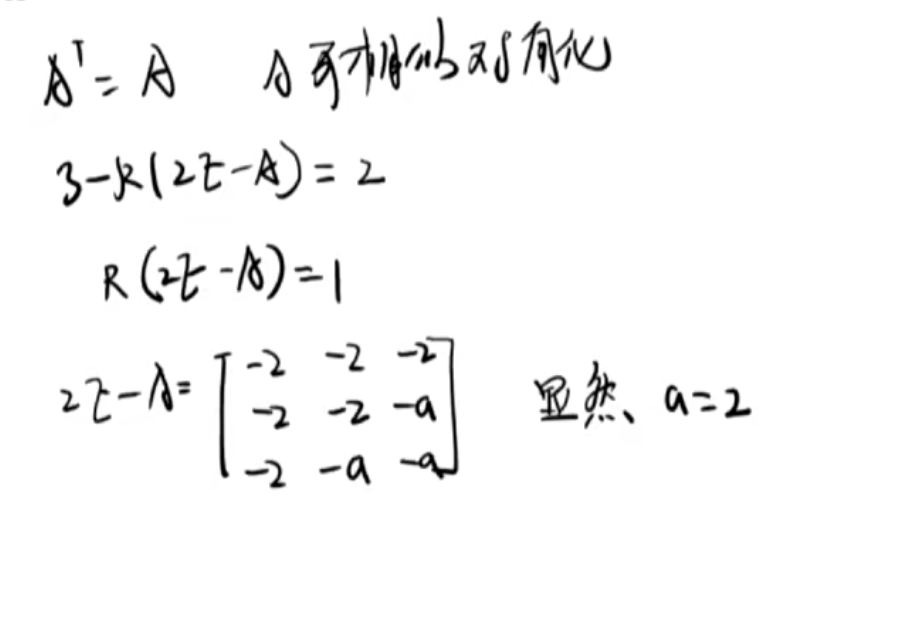 Aᵀ = A A可相似对角化
3-R(2E-A)=2
R(2E-A)=1
2E-A= [ -2 -2 -2
-2 -2 -a 显然、a=2
-2 -a -a ]